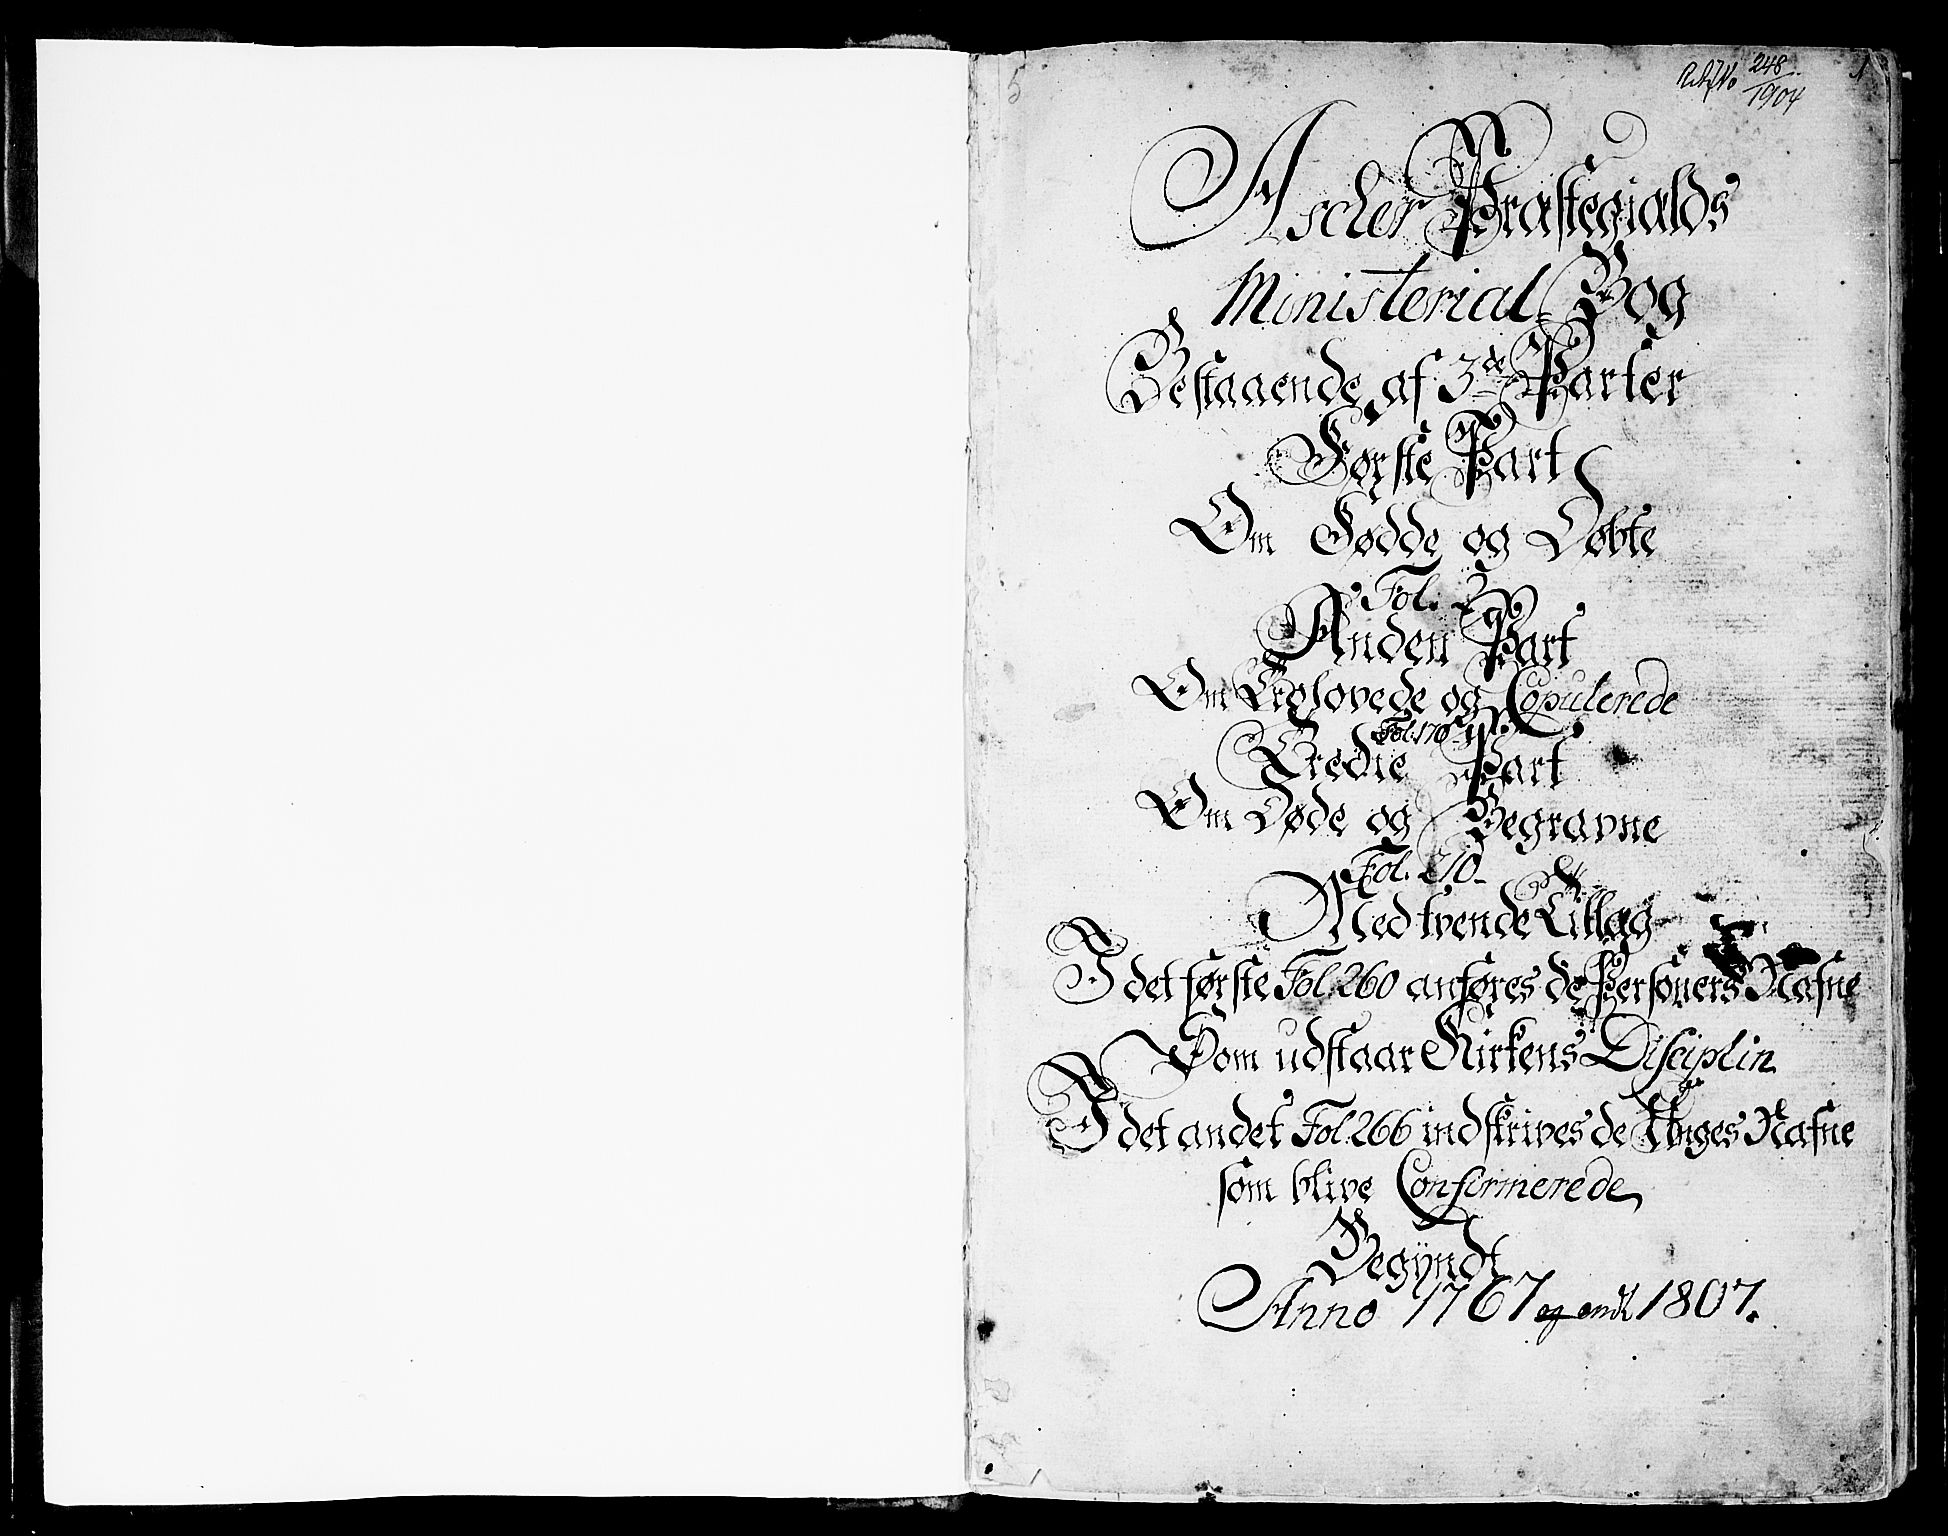 5
248
1904
1
Ascher Præstegiælds
Ministerial-Bog
Bestaaende af 3de Parter
Første Part
Om Fødde og Døbte
Fol. 2
Anden Part
Om Trolovede og Copulerede
Fol. 170
Tredie Part
Om Døde og Begravne
Fol. 210
Med tvende Tillæg
I det første Fol. 260 anføres de Personers Nafne
Som udstaar Kirkens Disciplin
I det andet Fol. 266 indskrives de Unges Nafne
som blive Confirmerede
Begÿndt
Anno 1767 og endt 1807.